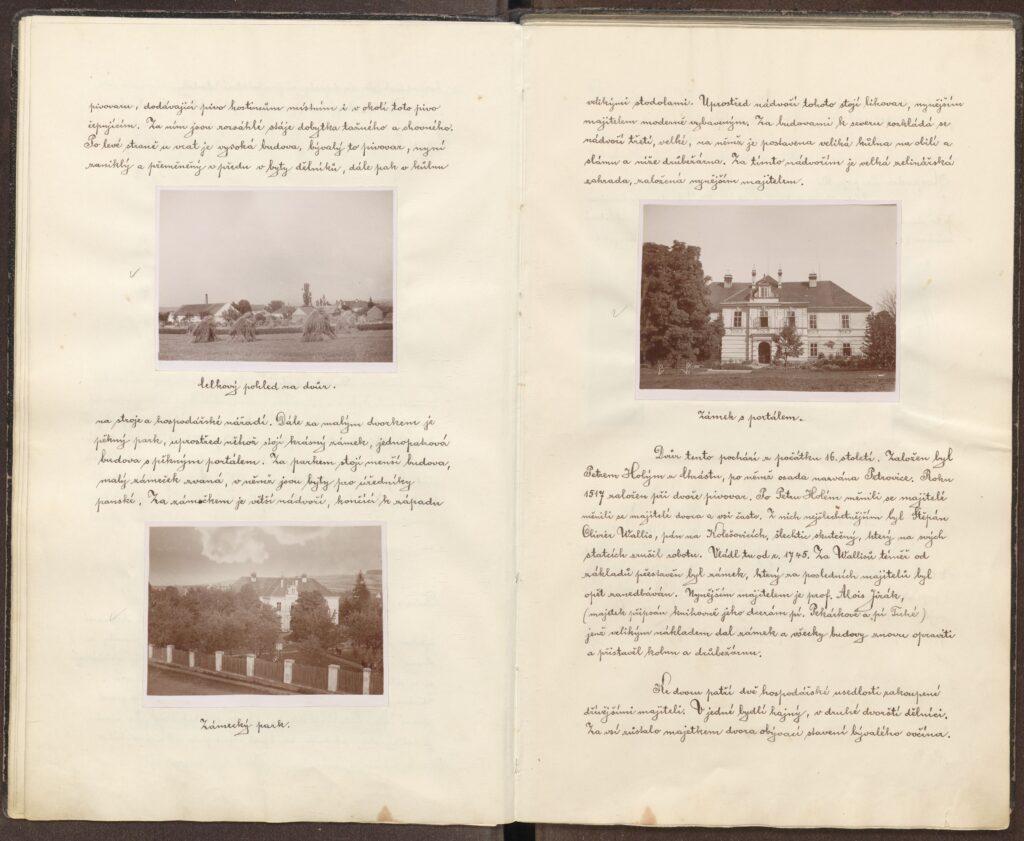 pivovaru, dodávající pivo hostincům místním i v okolí toto pivo
čepujícím. Za ním jsou rozsáhlé stáje dobytka tažného a chovného.
Po levé straně u vrat je vysoká budova, bývalý to pivovar, nyní
zaniklý a přeměněný v předu v byty dělníků, dále pak v kůlnu
Celkový pohled na dvůr.
na stroje a hospodářské nářadí. Dále za malým dvorkem je
pěkný park, uprostřed něhož stojí krásný zámek, jednopatrová
budova s pěkným portálem. Za parkem stojí menší budova,
malý zámeček zvaná, v němž jsou byty pro úředníky
panské. Za zámečkem je větší nádvoří, končící k západu
Zámecký park.
velikými stodolami. Uprostřed nádvoří tohoto stojí lihovar, nynějším
majitelem moderně vybaveným. Za budovami k severu rozkládá se
nádvoří třetí, velké, na němž je postavena veliká kůlna na obilí a
slámu a níže drůbežárna. Za tímto nádvořím je velká zelinářská
zahrada, založená nynějším majitelem.
Zámek s portálem.
Dvůr tento pochází z počátku 16. století. Založen byl
Petrem Holým z Chrástu, po němž osada nazvána Petrovice. Roku
1517 založen při dvoře pivovar. Po Petru Holém měnili se majitelé
měnili se majitelé dvora a vsi často. Z nich nejšlechetnějším byl Štěpán
Olivér Wallis, pán na Kolešovicích, šlechtic skutečný, který na svých
statcích zrušil robotu. Vládl tu od r. 1745. Za Wallisů téměř od
základů přestavěn byl zámek, který za posledních majitelů byl
opět zanedbáván. Nynějším majitelem je prof. Alois Jirák,
(majetek připsán knihovně jeho dcerám pí. Pekárkové a pí Tiché)
jenž velikým nákladem dal zámek a všecky budovy znovu opraviti
a přistavěl kolnu a drůbežárnu.
Ke dvoru patří dvě hospodářské usedlosti zakoupené
dřívějšími majiteli. V jedné bydlí hajný, v druhé dvorští dělníci.
Za vsí zůstalo majetkem dvora obývací stavení bývalého ovčína.